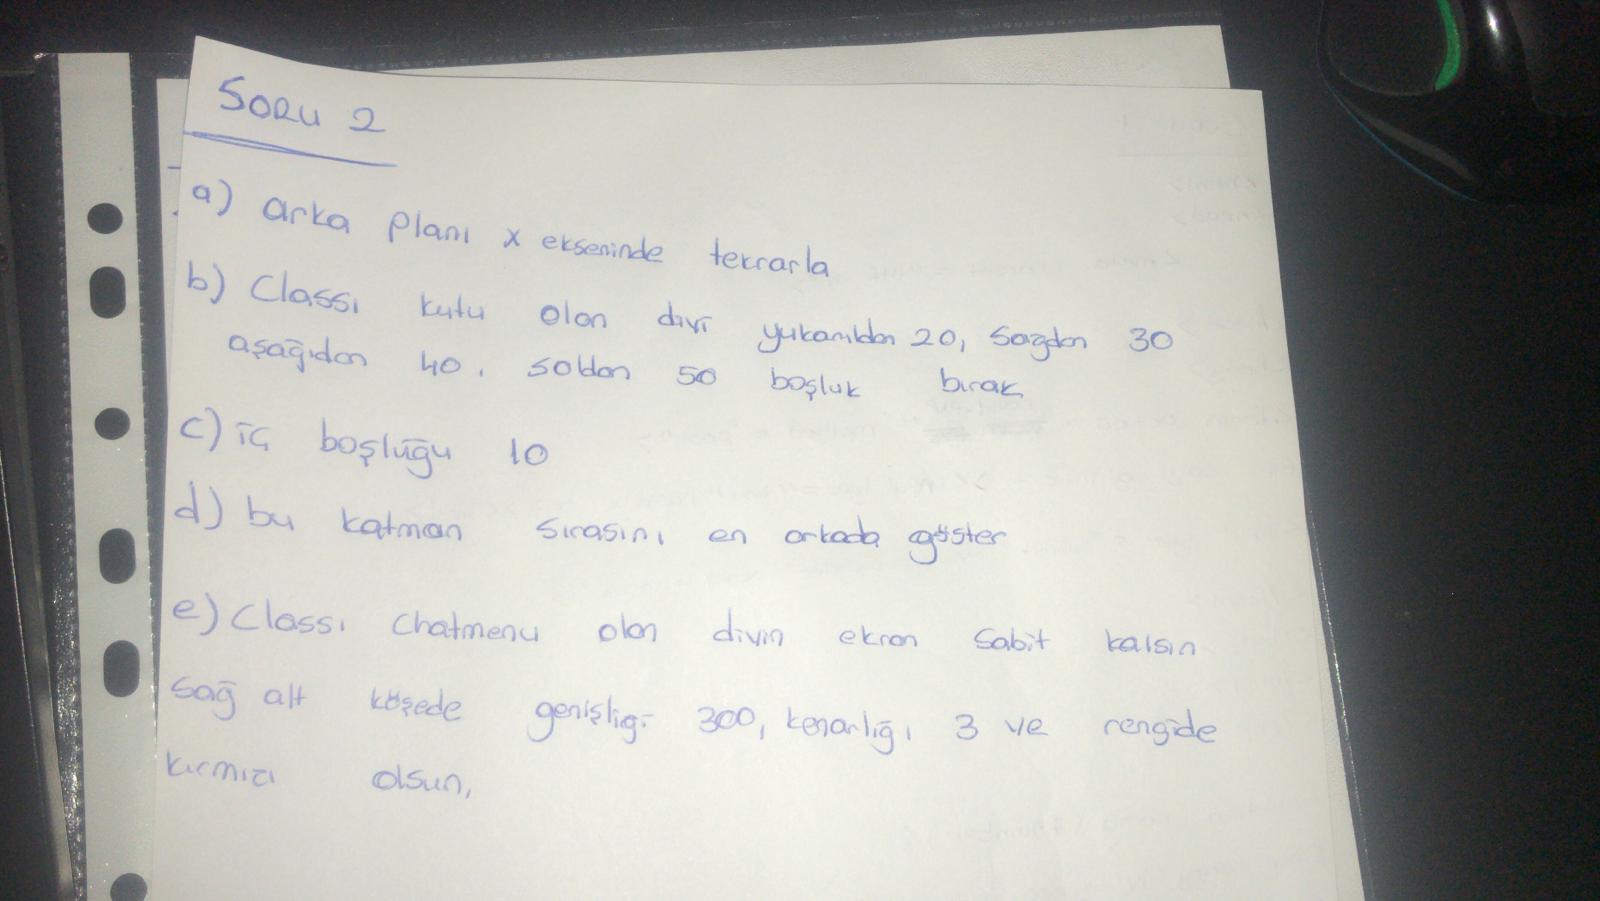 SORU 2
a) arka planı x ekseninde tekrarla
b) Classı kutu olan divi yukarıdan 20, sağdan 30
aşağıdan 40, soldan 50 boşluk bırak
c) iç boşluğu 10
d) bu katman sırasını en arkada göster
e) Classı chatmenu olan divin ekran sabit kalsın
sağ alt köşede genişliği 300, kenarlığı 3 ve rengide
kırmızı olsun,